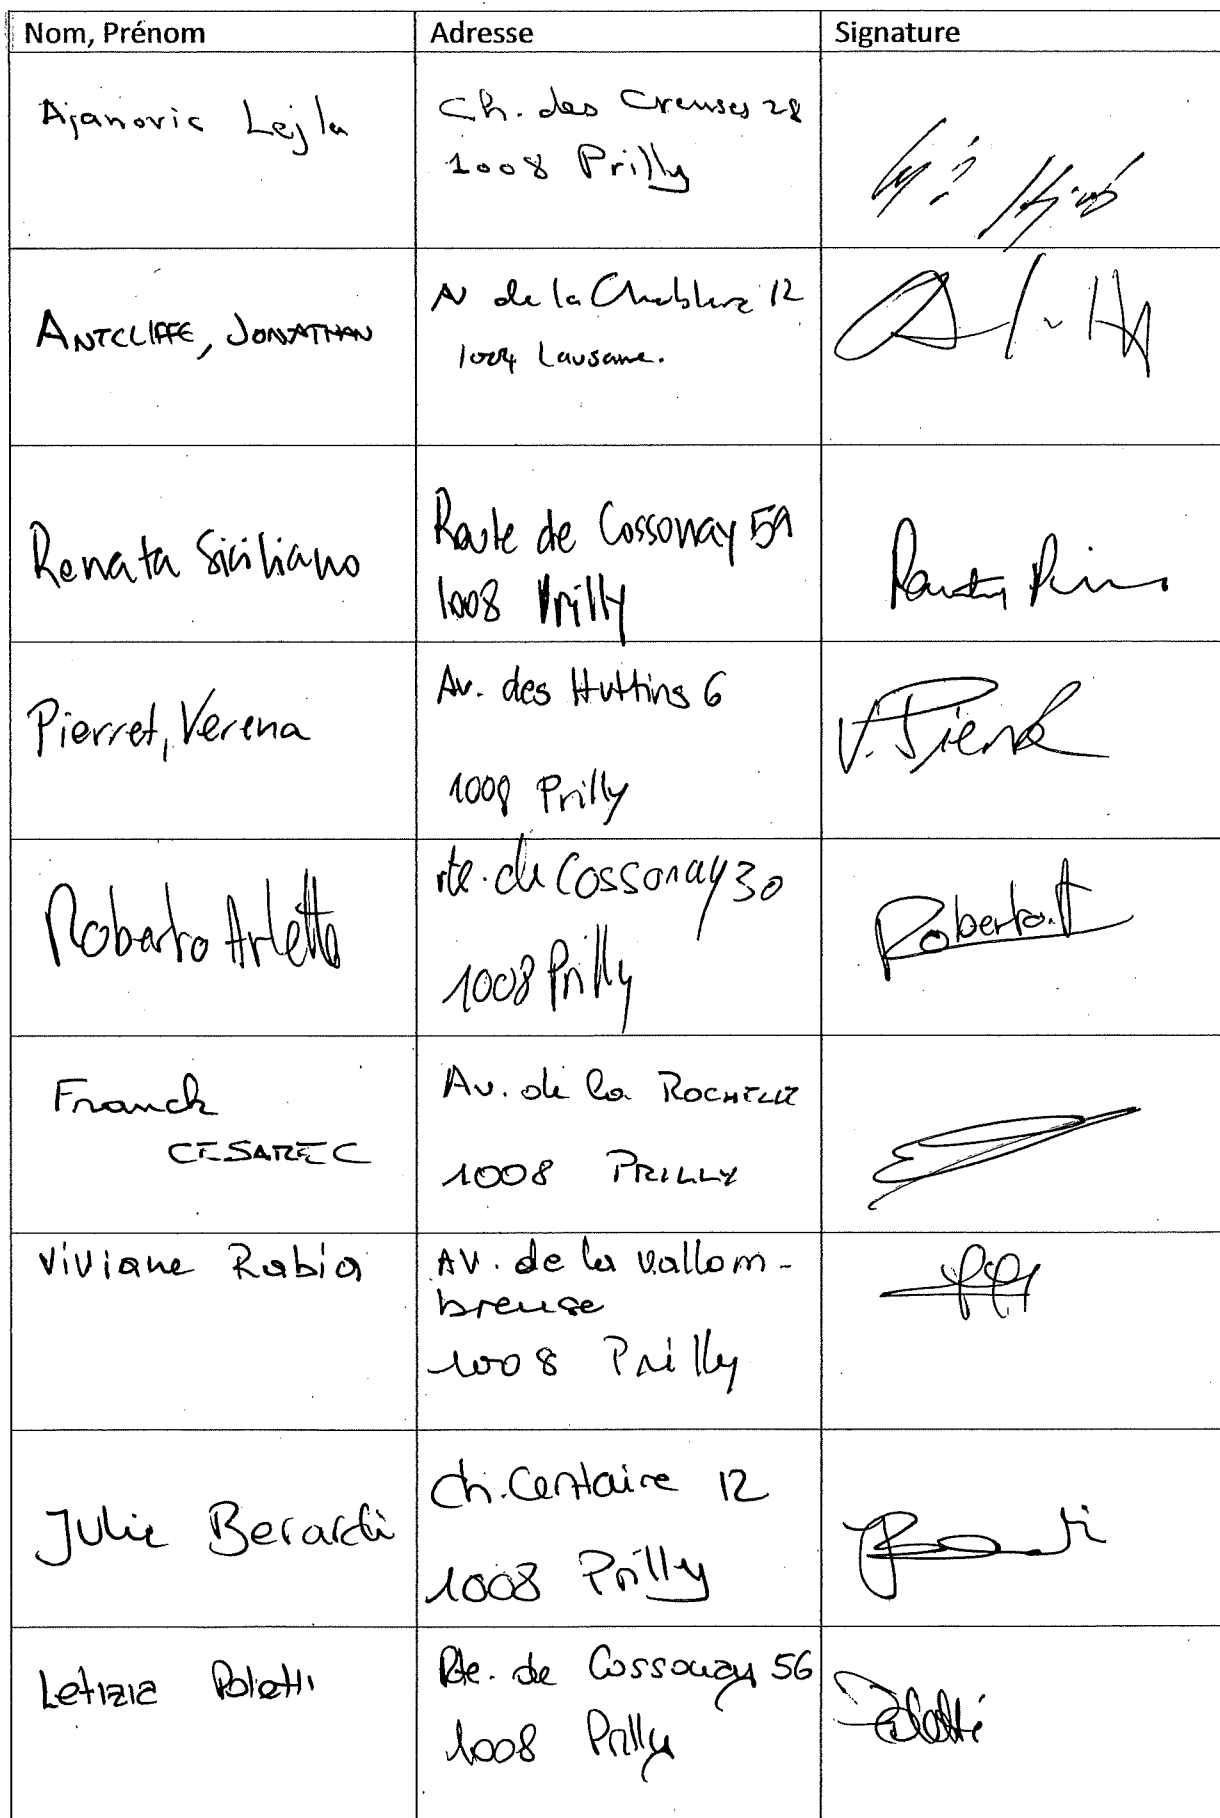 Nom, Prénom Adresse Signature
Ajanovic Lejla
Ch. des Creuses 28
1008 Prilly
ANTCLIFFE, JONATHAN
Av de la Chablière 12
1004 Lausanne.
Renata Siciliano
Route de Cossonay 59
1008 Prilly
Pierret, Verena
Av. des Huttins 6
1008 Prilly
V. Pierret
Roberto Arletto
rte. de Cossonay 30
1008 Prilly
Roberto.A
Franck
CESAREC
Av. de la ROCHELLE
1008 PRILLY
Viviane Rabia
AV. de la vallom-
breuse
1008 Prilly
Julie Berardi
Ch. Centaire 12
1008 Prilly
Letizia Poletti
Rte. de Cossonay 56
1008 Prilly
Poletti